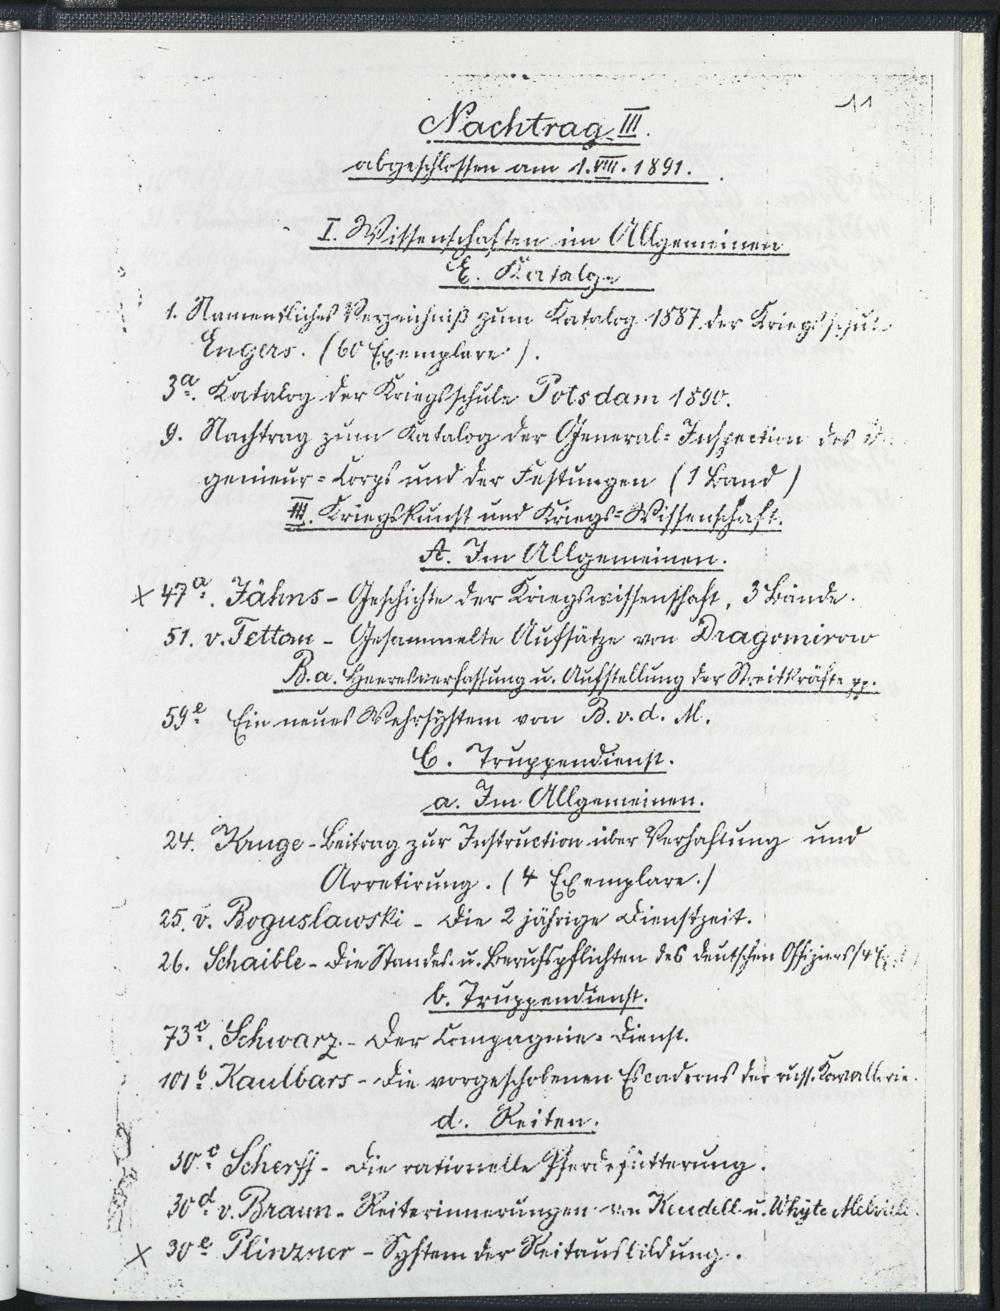 11
Nachtrag III.
abgeschlossen am 1. VIII. 1891.
I. Wissenschaften im Allgemeinen
E. Kataloge
1. Namentliches Verzeichniß zum Katalog 1887 der Kriegsschule
Engers. (60 Exemplare).
3a. Katalog der Kriegsschule Potsdam 1890.
9. Nachtrag zum Katalog der General=Inspection des
genieur=Corps und der Festungen (1 Band)
III. Kriegskunst und Kriegs=Wissenschaft.
A. Im Allgemeinen.
x 47a. Jähns - Geschichte der Kriegswissenschaft, 3 Bände.
51. v. Tettau - Gesammelte Aufsätze von Dragomirow
B.a. Heeresverfassung u. Aufstellung der Streitkräfte pp.
59e Ein neues Wehrsystem von B. v. d. M.
C. Truppendienst.
a. Im Allgemeinen.
24. Kruge - Beitrag zur Instruction über Verhaftung und
Arretirung. (4 Exemplare.)
25. v. Boguslawski - Die 2 jährige Dienstzeit.
26. Schaible - Die Standes- u. Berufspflichten des deutschen Offiziers (4
b. Truppendienst.
73c. Schwarz - Der Compagnie=Dienst.
101b. Kaulbars - Die vorgeschobenen Escadrons der russ. Kavallerie.
d. Reiten.
30c Scherff - Die rationelle Pferdefütterung.
30d v. Braun - Reiterinnerungen von Keudell u. Whyte Melville.
x 30e Plinzner - System der Reitausbildung.